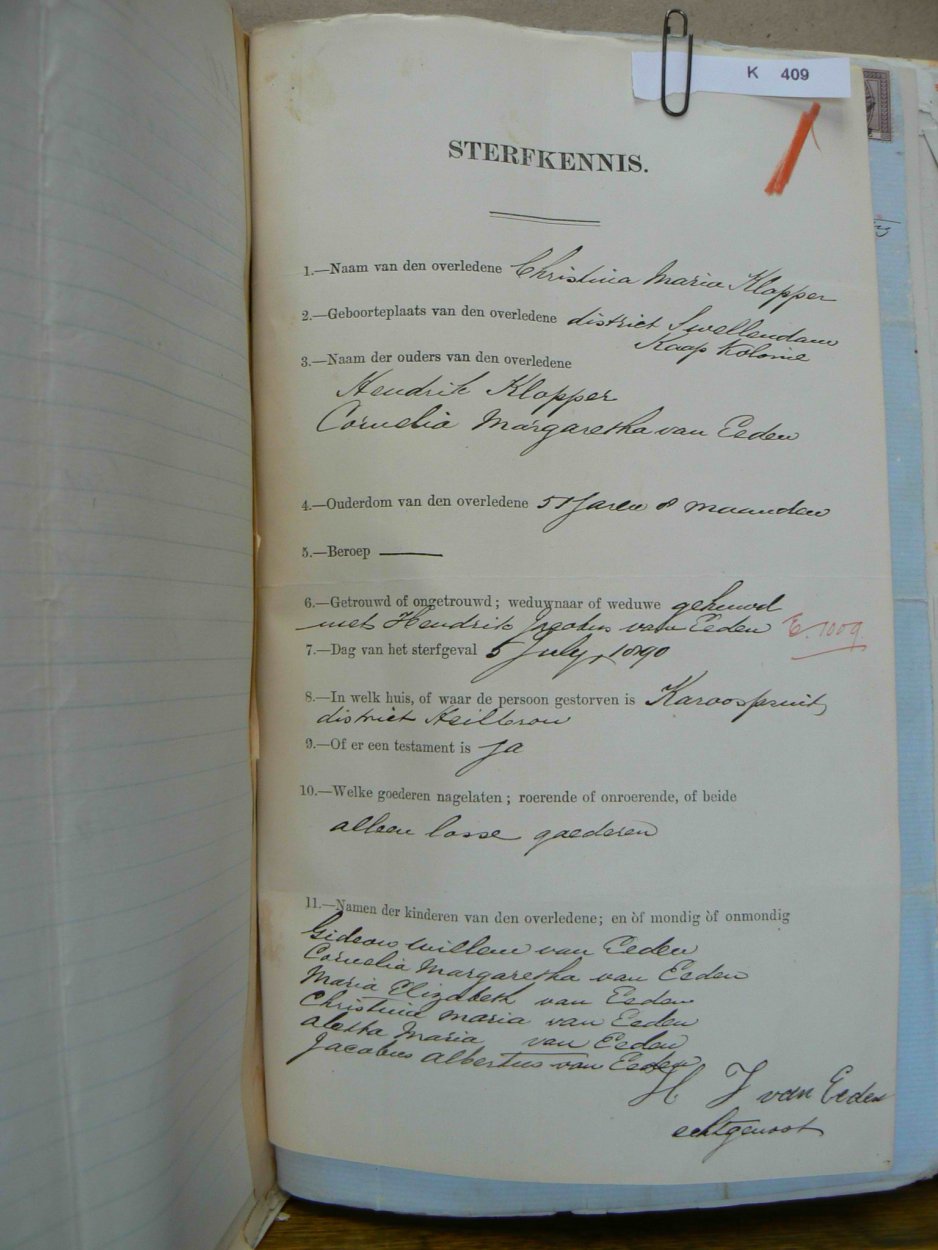 K 409
STERFKENNIS.
1.—Naam van den overledene Christina Maria Klopper
2.—Geboorteplaats van den overledene district Swellendam
Kaap Kolonie
3.—Naam der ouders van den overledene
Hendrik Klopper
Cornelia Margaretha van Eeden
4.—Ouderdom van den overledene 51 Jaren 8 maanden
5.—Beroep ———
6.—Getrouwd of ongetrouwd; weduwnaar of weduwe gehuwd
met Hendrik van Eeden E. 1009
7.—Dag van het sterfgeval 5 July, 1890
8.—In welk huis, of waar de persoon gestorven is Karoospruit,
district Heilbron
9.—Of er een testament is Ja
10.—Welke goederen nagelaten; roerende of onroerende, of beide
alleen losse goederen
11.—Namen der kinderen van den overledene; en òf mondig òf onmondig
Gideon willem van Eeden
Cornelia Margaretha van Eeden
Maria Elizabeth van Eeden
Christina maria van Eeden
aletha Maria van Eeden
Jacobus albertus van Eeden
H J van Eeden
echtgenoot